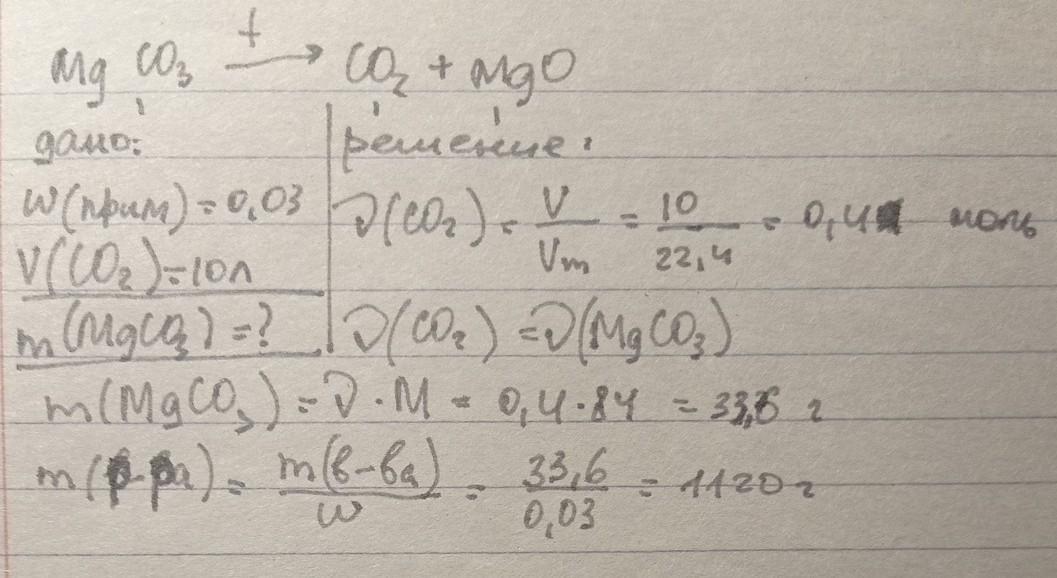 MgCO₃ —t→ CO₂ + MgO
дано:
решение:
w(прим) = 0,03
V(CO₂) = 10 л
m(MgCO₃) = ?
ν(CO₂) = V/Vm = 10/22,4 = 0,4 моль
ν(CO₂) = ν(MgCO₃)
m(MgCO₃) = ν · M = 0,4 · 84 = 33,6 г
m(р-ра) = m(в-ва)/w = 33,6/0,03 = 1120 г